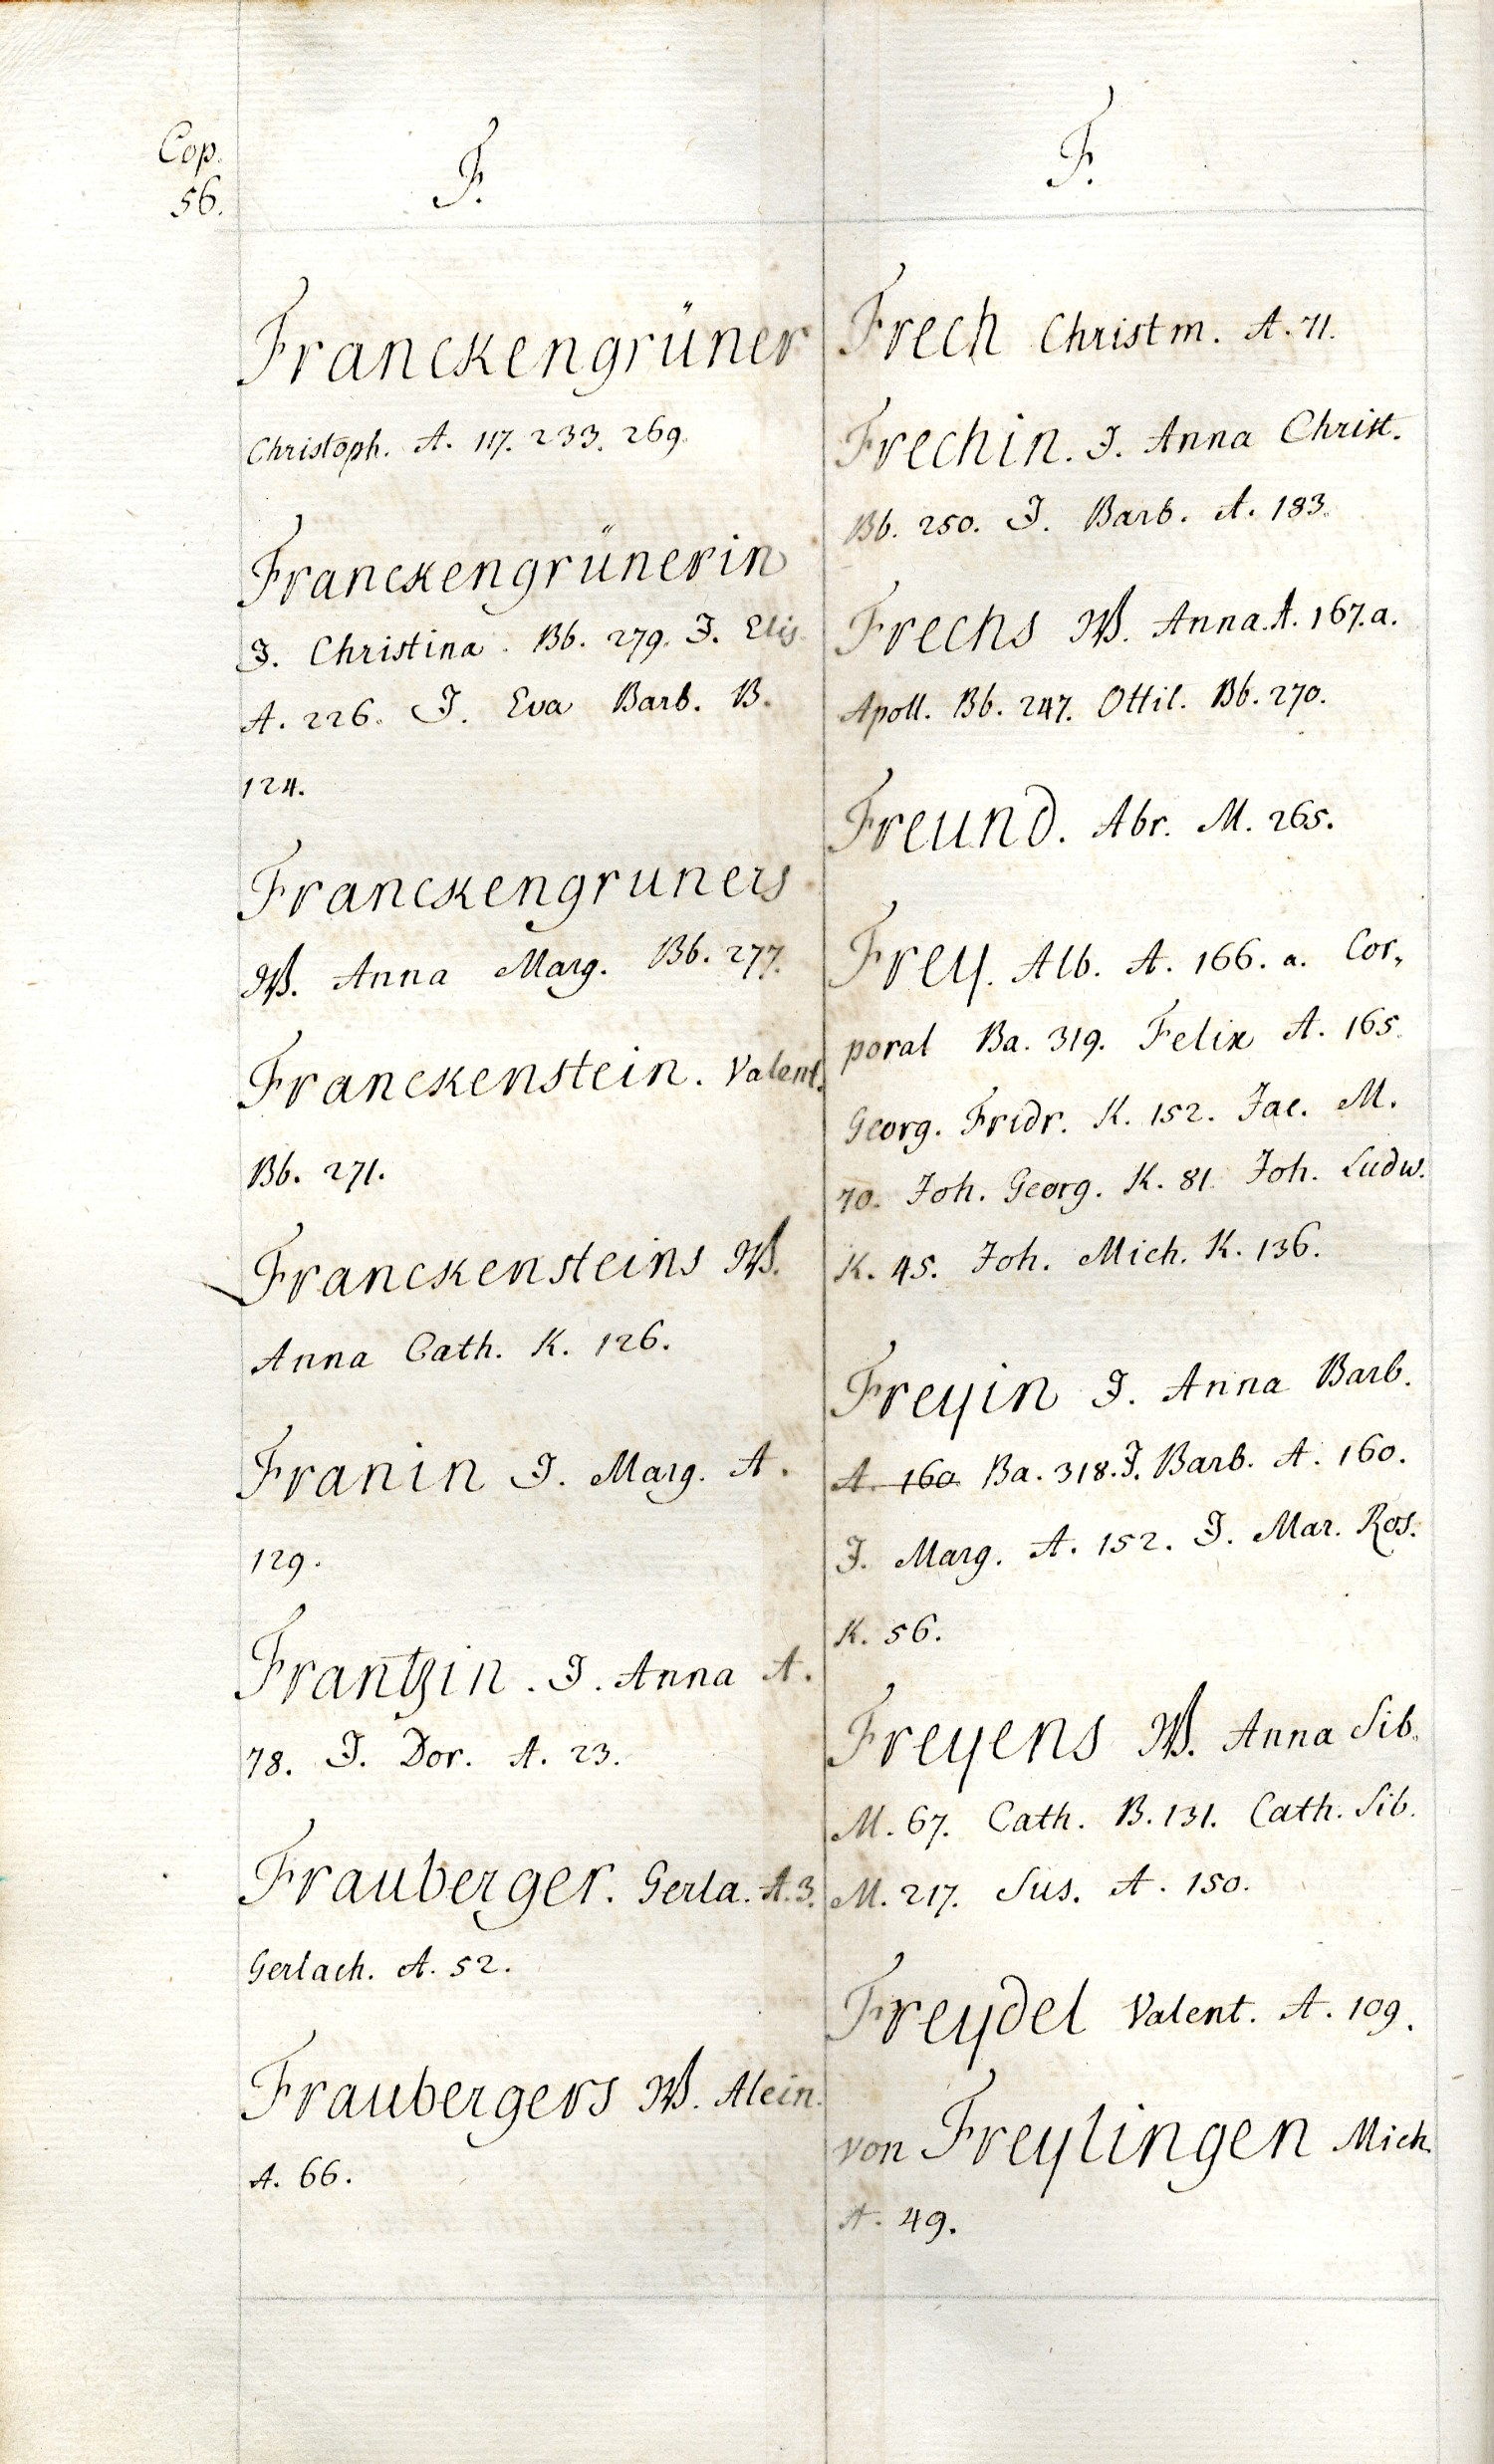 Cop.
56.
F.
Franckengrüner
Christoph. A. 117. 233. 269.
Franckengrünerin
J. Christina. Bb. 279. J. Elis.
A. 226. J. Eva Barb. B.
124.
Franckengruners
W. Anna Marg. Bb. 277.
Franckenstein. Valent.
Bb. 271.
Franckensteins W.
Anna Cath. K. 126.
Franin J. Marg. A.
129.
Frantzin. J. Anna A.
78. J. Dor. A. 23.
Frauberger. Gerla. A. 3.
Gerlach. A. 52.
Fraubergers W. Alein.
A. 66.
F.
Frech Christm. A. 71.
Frechin. J. Anna Christ.
Bb. 250. J. Barb. A. 183.
Frechs W. Anna. A. 167. a.
Apoll. Bb. 247. Ottil. Bb. 270.
Freund. Abr. M. 265.
Frey. Alb. A. 166. a. Cor,
poral Ba. 319. Felix A. 165.
Georg. Fridr. K. 152. Jac. M.
70. Joh. Georg. K. 81. Joh. Ludw.
K. 45. Joh. Mich. K. 136.
Freyin J. Anna Barb.
A. 160 Ba. 318. J. Barb. A. 160.
J. Marg. A. 152. J. Mar. Ros.
K. 56.
Freyens W. Anna Sib.
M. 67. Cath. B. 131. Cath. Sib.
M. 217. Sus. A. 150.
Freydel Valent. A. 109.
von Freylingen Mich.
A. 49.